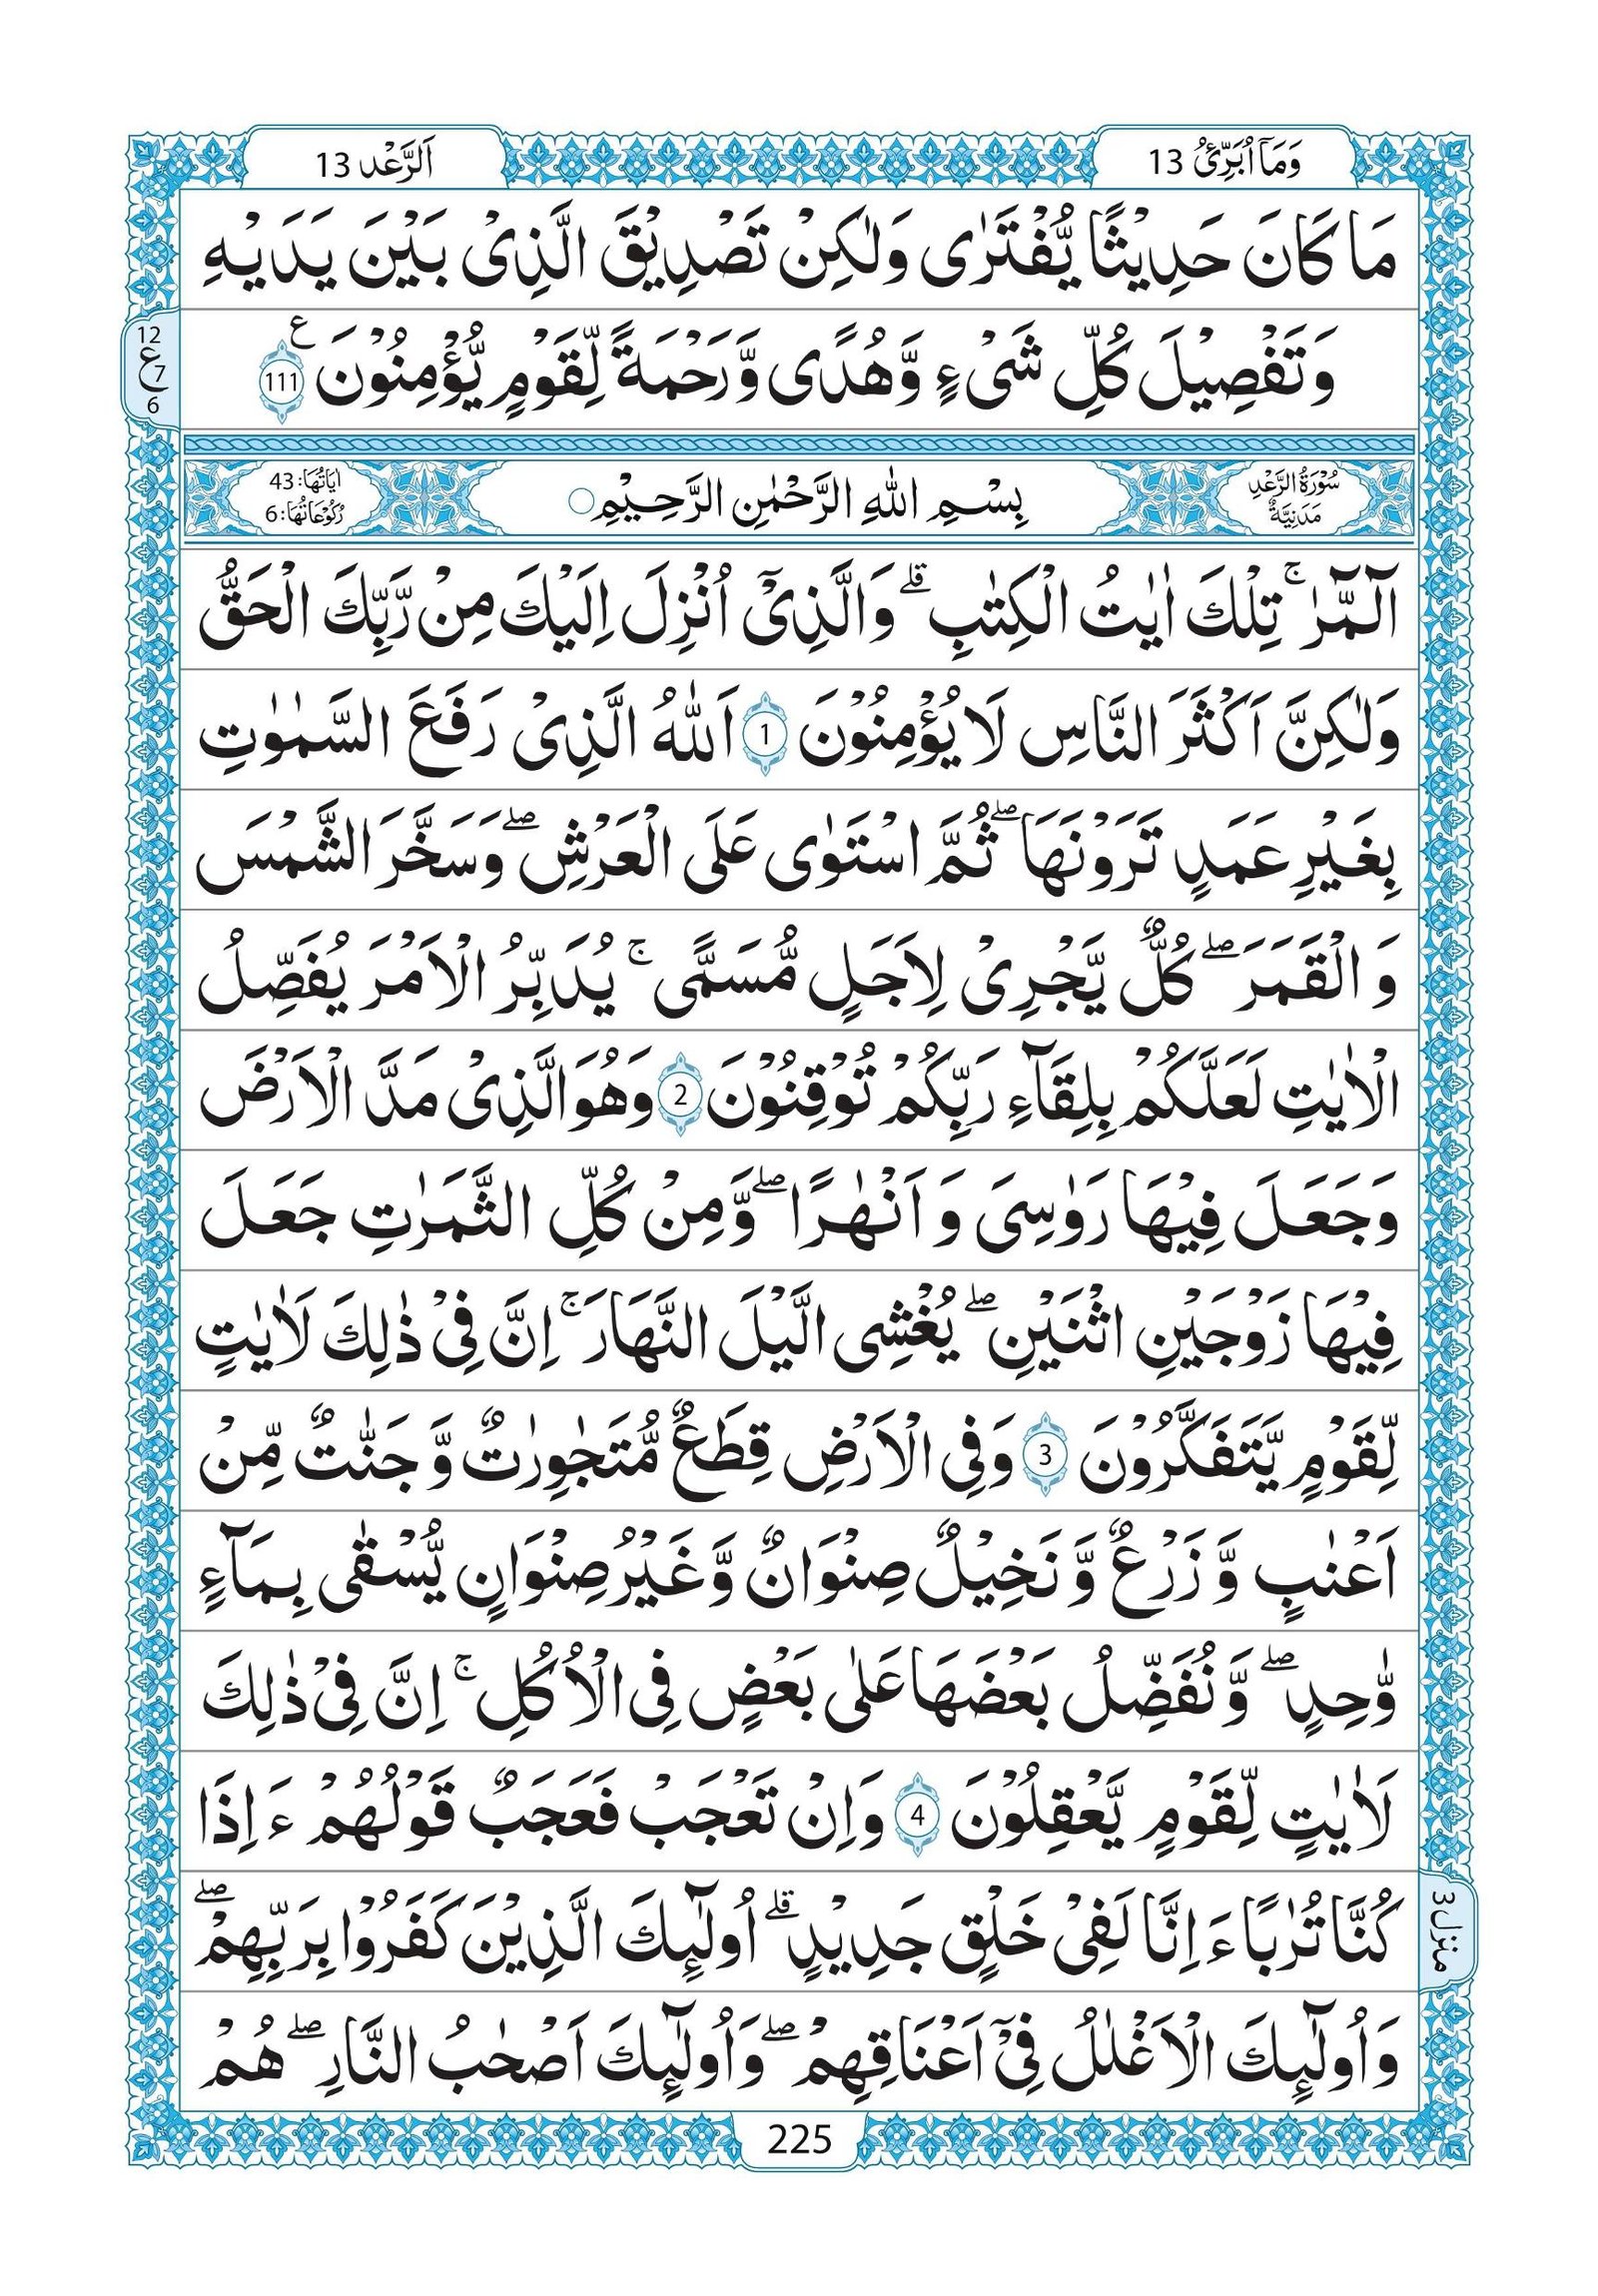 وَمَاۤ اُبَرِّئُ 13
اَلرَّعْد 13
مَا كَانَ حَدِيْثًا يُّفْتَرٰى وَلٰكِنْ تَصْدِيْقَ الَّذِىْ بَيْنَ يَدَيْهِ
وَتَفْصِيْلَ كُلِّ شَىْءٍ وَّهُدًى وَّرَحْمَةً لِّقَوْمٍ يُّؤْمِنُوْنَ ࣖ 111
12
ع 7
6
سُوْرَةُ الرَّعْدِ
مَدَنِيَّةٌ
بِسْمِ اللهِ الرَّحْمٰنِ الرَّحِيْمِ ○
اٰيَاتُهَا: 43
رُكُوْعَاتُهَا: 6
الٓمّٓرٰ ۚ تِلْكَ اٰيٰتُ الْكِتٰبِ ۗ وَالَّذِىْۤ اُنْزِلَ اِلَيْكَ مِنْ رَّبِّكَ الْحَقُّ
وَلٰكِنَّ اَكْثَرَ النَّاسِ لَا يُؤْمِنُوْنَ 1 اَللهُ الَّذِىْ رَفَعَ السَّمٰوٰتِ
بِغَيْرِ عَمَدٍ تَرَوْنَهَا ۖ ثُمَّ اسْتَوٰى عَلَى الْعَرْشِ ۖ وَسَخَّرَ الشَّمْسَ
وَ الْقَمَرَ ۖ كُلٌّ يَّجْرِىْ لِاَجَلٍ مُّسَمًّى ۚ يُدَبِّرُ الْاَمْرَ يُفَصِّلُ
الْاٰيٰتِ لَعَلَّكُمْ بِلِقَآءِ رَبِّكُمْ تُوْقِنُوْنَ 2 وَهُوَ الَّذِىْ مَدَّ الْاَرْضَ
وَجَعَلَ فِيْهَا رَوٰسِىَ وَ اَنْهٰرًا ۖ وَّمِنْ كُلِّ الثَّمَرٰتِ جَعَلَ
فِيْهَا زَوْجَيْنِ اثْنَيْنِ ۖ يُغْشِى الَّيْلَ النَّهَارَ ۚ اِنَّ فِىْ ذٰلِكَ لَاٰيٰتٍ
لِّقَوْمٍ يَّتَفَكَّرُوْنَ 3 وَفِى الْاَرْضِ قِطَعٌ مُّتَجٰوِرٰتٌ وَّ جَنّٰتٌ مِّنْ
اَعْنٰبٍ وَّ زَرْعٌ وَّ نَخِيْلٌ صِنْوَانٌ وَّغَيْرُ صِنْوَانٍ يُّسْقٰى بِمَآءٍ
وّٰحِدٍ ۖ وَّ نُفَضِّلُ بَعْضَهَا عَلٰى بَعْضٍ فِى الْاُكُلِ ۚ اِنَّ فِىْ ذٰلِكَ
لَاٰيٰتٍ لِّقَوْمٍ يَّعْقِلُوْنَ 4 وَاِنْ تَعْجَبْ فَعَجَبٌ قَوْلُهُمْ ءَ اِذَا
كُنَّا تُرٰبًا ءَ اِنَّا لَفِىْ خَلْقٍ جَدِيْدٍ ۗ اُولٰٓئِكَ الَّذِيْنَ كَفَرُوْا بِرَبِّهِمْ ۖ
منزل 3
وَاُولٰٓئِكَ الْاَغْلٰلُ فِىْۤ اَعْنَاقِهِمْ ۖ وَاُولٰٓئِكَ اَصْحٰبُ النَّارِ ۖ هُمْ
225